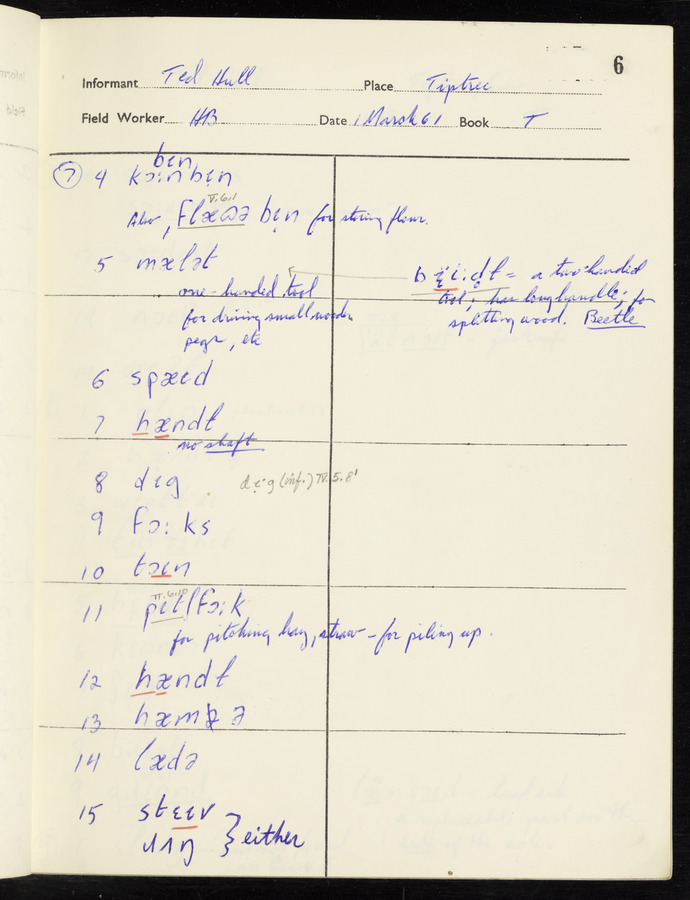 6
Informant Ted Hull Place Tiptree
Field Worker HB Date 1 March 61 Book T
bɪn
⑦ 4 kɔːnbɪn
V.6.1
Also, flæʊə bɪn for storing flour.
5 mælət
one-handed tool
for driving small wooden
pegs, etc
= a two-handed
tool; has long handle; for
splitting wood. Beetle
6 spæɪd
7 hændɫ
no shaft
8 dɪg dɪ·g (inf.) IV.5.8'
9 fɔːks
10 tɔɪn
II.6.10
11 pɪtʃfɔːk
for pitching hay, straw – for piling up.
12 hændɫ
13 hæm ə
14 lædə
15
rʌŋ } either